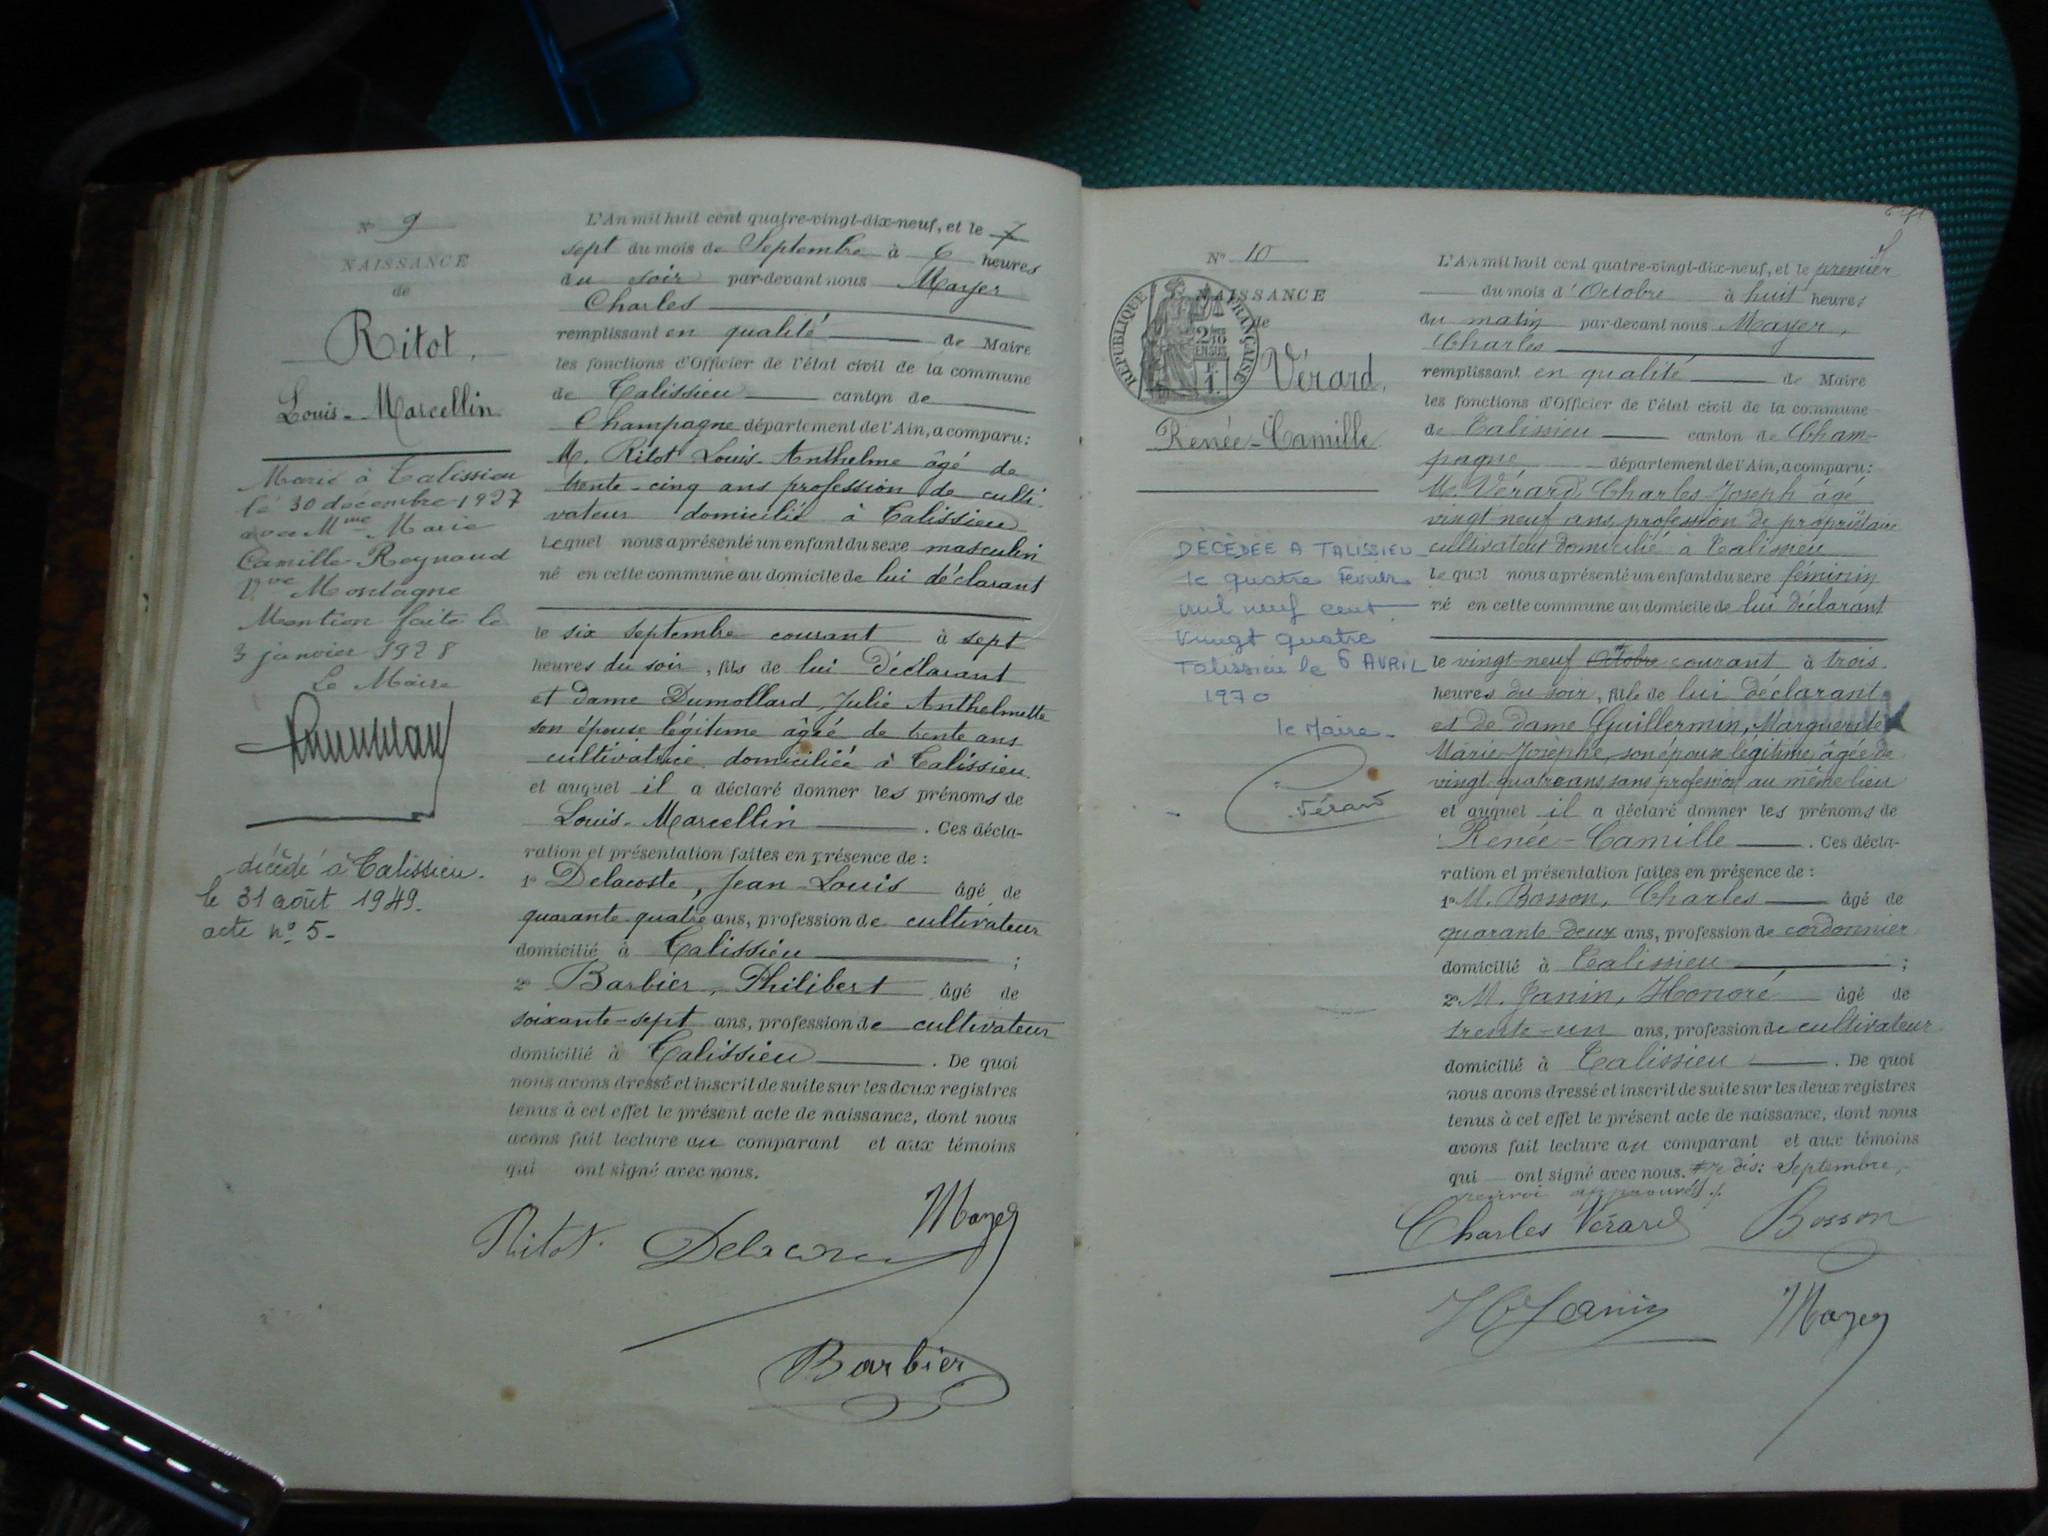 N° 9
NAISSANCE
de
Ritot,
Louis-Marcellin
Marié à Talissieu
le 30 décembre 1927
avec Mme Marie
Camille Reynaud
Vve Montagne
Mention faite le
3 janvier 1928
Le Maire
décédé à Talissieu.
le 31 août 1949.
acte n° 5-
L'An mil huit cent quatre-vingt-dix-neuf, et le 7
sept du mois de Septembre à 6 heures
du soir par-devant nous Mayer
Charles
remplissant en qualité de Maire
les fonctions d'Officier de l'état civil de la commune
de Talissieu canton de
Champagne département de l'Ain, a comparu:
M. Ritot Louis-Anthelme âgé de
trente-cinq ans profession de culti-
vateur domicilié à Talissieu
Lequel nous a présenté un enfant du sexe masculin
né en cette commune au domicile de lui déclarant
le six septembre courant à sept
heures du soir, fils de lui déclarant
et dame Dumollard, Julie Anthelmette
son épouse légitime âgée de trente ans
cultivatrice domiciliée à Talissieu.
et auquel il a déclaré donner les prénoms de
Louis-Marcellin . Ces décla-
ration et présentation faites en présence de :
1° Delacoste, Jean-Louis âgé de
quarante-quatre ans, profession de cultivateur
domicilié à Talissieu ;
2° Barbier, Philibert âgé de
soixante-sept ans, profession de cultivateur
domicilié à Talissieu . De quoi
nous avons dressé et inscrit de suite sur les deux registres
tenus à cet effet le présent acte de naissance, dont nous
avons fait lecture au comparant et aux témoins
qui ont signé avec nous.
Mayer
Ritot. Delacoste
Barbier
N° 10
NAISSANCE
de
RÉPUBLIQUE FRANÇAISE
2/10 EN SUS
1 F.
Vérard,
Renée-Camille
DÉCÉDÉE A TALISSIEU
le quatre Fevrier
mil neuf cent
vingt quatre
Talissieu le 6 AVRIL
1970
le Maire-
Vérard
L'An mil huit cent quatre-vingt-dix-neuf, et le premier
du mois d'Octobre à huit heures
du matin par-devant nous Mayer,
Charles
remplissant en qualité de Maire
les fonctions d'Officier de l'état civil de la commune
de Talissieu canton de Cham-
pagne département de l'Ain, a comparu:
M. Vérard, Charles-Joseph âgé
vingt neuf ans, profession de propriétaire
cultivateur domicilié à Talissieu
Lequel nous a présenté un enfant du sexe féminin
né en cette commune au domicile de lui déclarant
le vingt-neuf Octobre courant à trois
heures du soir, fille de lui déclarant
et de dame Guillermin, Marguerite
Marie-Josèphe, son épouse légitime, âgée de
vingt quatre ans, sans profession, au même lieu
et auquel il a déclaré donner les prénoms de
Renée-Camille . Ces décla-
ration et présentation faites en présence de :
1° M. Bosson, Charles âgé de
quarante deux ans, profession de cordonnier
domicilié à Talissieu ;
2° M. Janin, Honoré âgé de
trente-un ans, profession de cultivateur
domicilié à Talissieu . De quoi
nous avons dressé et inscrit de suite sur les deux registres
tenus à cet effet le présent acte de naissance, dont nous
avons fait lecture au comparant et aux témoins
qui ont signé avec nous. je dis: Septembre,
renvoi approuvé.
Charles Vérard Bosson
H Janin Mayer